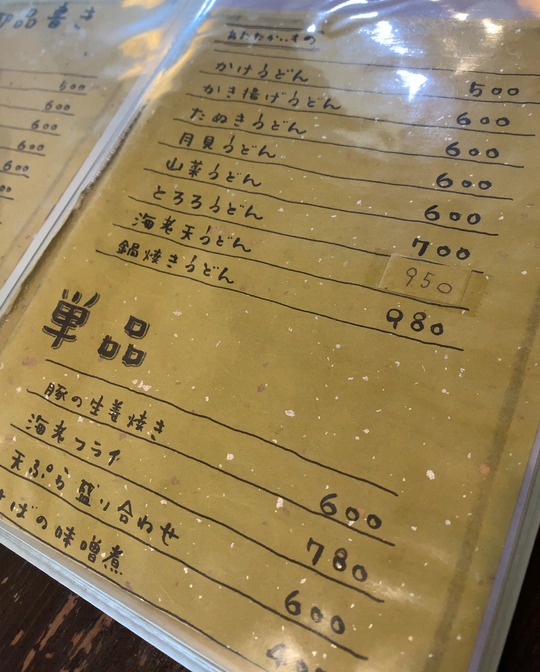 品書き
500
600
600
600
600
あたたかいもの
かけうどん 500
かき揚げうどん 600
たぬきうどん 600
月見うどん 600
山菜うどん 600
とろろうどん 700
海老天うどん 950
鍋焼きうどん 980
単品
豚の生姜焼き 600
海老フライ 780
天ぷら盛り合わせ 600
さばの味噌煮